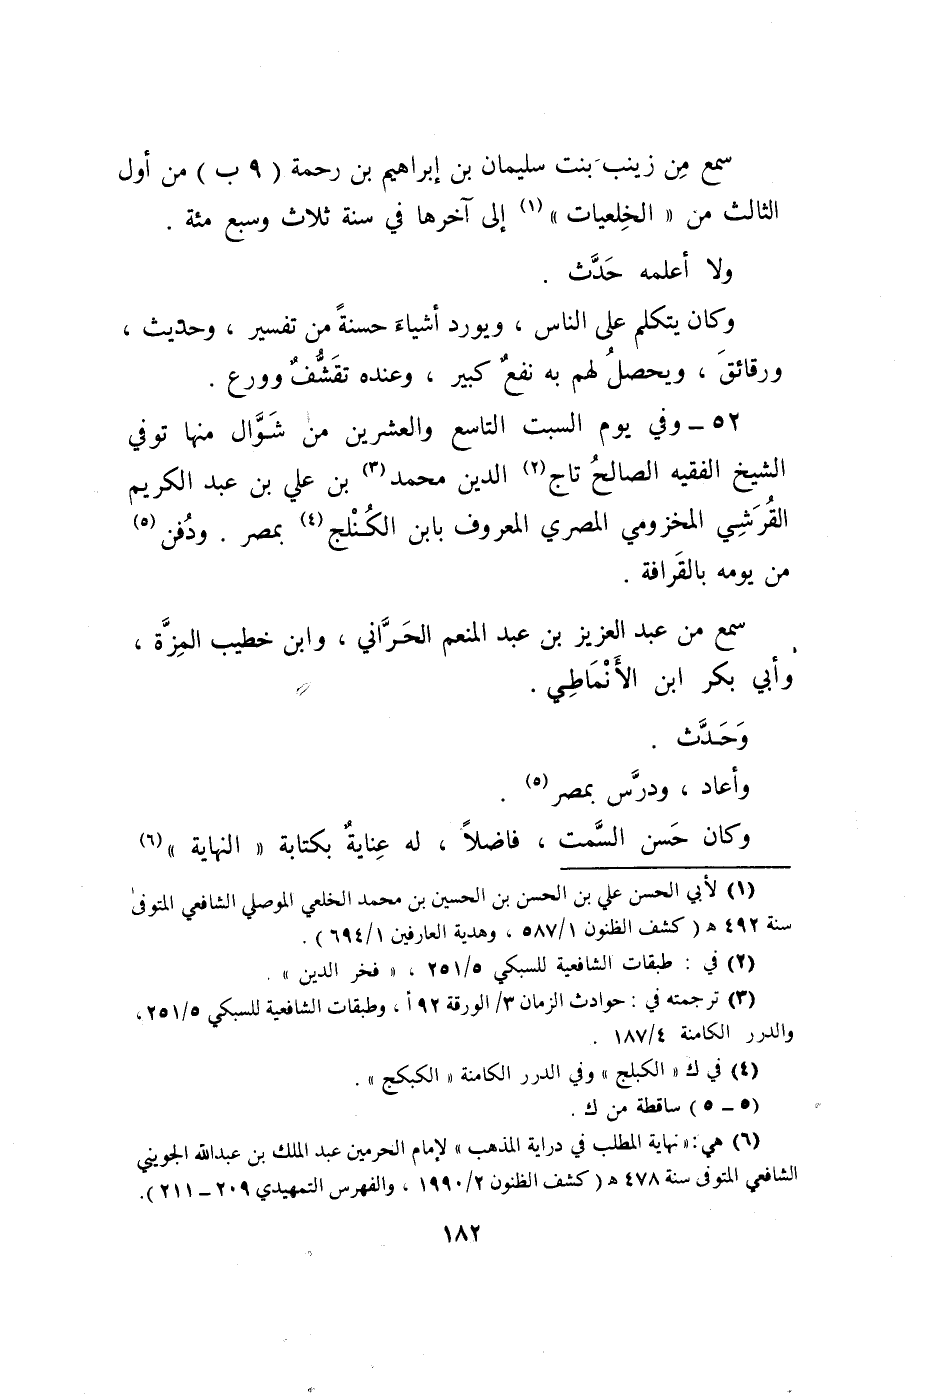 سمع مِن زينب بنت سليمان بن إبراهيم بن رحمة ( ٩ ب ) من أول
الثالث من « الخِلعيات »(١) إلى آخرها في سنة ثلاث وسبع مئة .
ولا أعلمه حَدَّث .
وكان يتكلم على الناس ، ويورد أشياءَ حسنةً من تفسير ، وحديث ،
ورقائقَ ، ويحصلُ لهم به نفعٌ كبير ، وعنده تقَشُّفٌ وورع .
٥٢ ــ وفي يوم السبت التاسع والعشرين من شَوَّال منها توفي
الشيخ الفقيه الصالحُ تاج(٢) الدين محمد(٣) بن علي بن عبد الكريم
القُرَشِي المخزومي المصري المعروف بابن الكُنْلج(٤) بمصر . ودُفن(٥)
من يومه بالقَرافة .
سمع من عبد العزيز بن عبد المنعم الحَرَّاني ، وابن خطيب المِزَّة ،
وأبي بكر ابن الأَنْمَاطِي .
وَحَدَّث .
وأعاد ، ودرَّس بمصر(٥) .
وكان حَسن السَّمت ، فاضلاً ، له عِنايةٌ بكتابة « النهاية »(٦)
(١) لأبي الحسن علي بن الحسن بن الحسين بن محمد الخلعي الموصلي الشافعي المتوفى
سنة ٤٩٢ هـ ( كشف الظنون ٥٨٧/١ ، وهدية العارفين ٦٩٤/١ ) .
(٢) في : طبقات الشافعية للسبكي ٢٥١/٥ ، « فخر الدين » .
(٣) ترجمته في : حوادث الزمان ٣/ الورقة ٩٢ أ ، وطبقات الشافعية للسبكي ٢٥١/٥ ،
والدرر الكامنة ١٨٧/٤ .
(٤) في ك « الكبلج » وفي الدرر الكامنة « الكبكج » .
(٥ ــ ٥ ) ساقطة من ك .
(٦) هي :« نهاية المطلب في دراية المذهب » لإمام الحرمين عبد الملك بن عبدالله الجويني
الشافعي المتوفى سنة ٤٧٨ هـ ( كشف الظنون ١٩٩٠/٢ ، والفهرس التمهيدي ٢٠٩ ــ ٢١١ ).
١٨٢